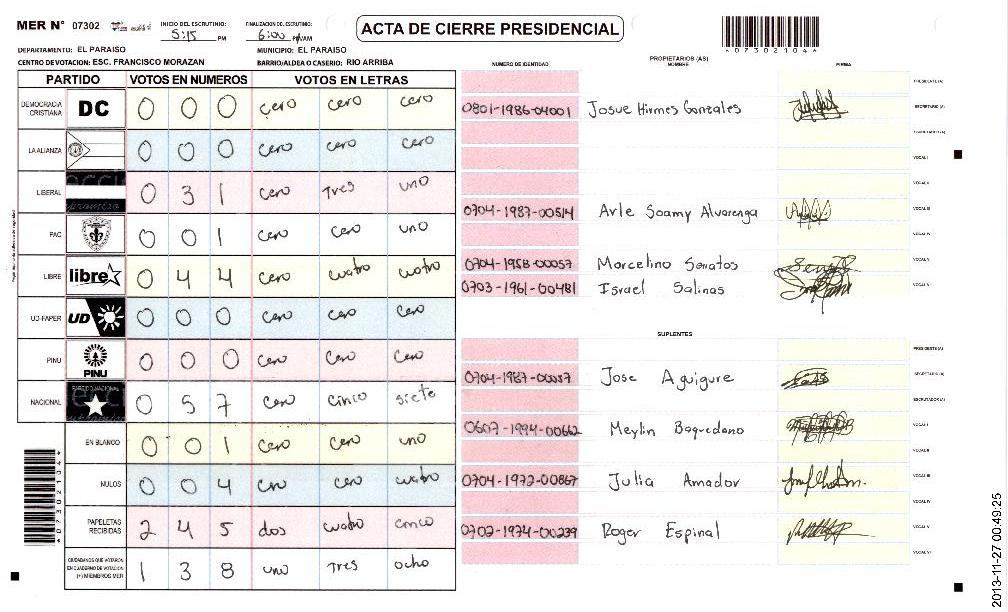 MER N° 07302
INICIO DEL ESCRUTINIO: 5:15 PM
FINALIZACION DEL ESCRUTINIO: 6:00 PM/AM
ACTA DE CIERRE PRESIDENCIAL
*07302104*
DEPARTAMENTO: EL PARAISO
MUNICIPIO: EL PARAISO
CENTRO DE VOTACION: ESC. FRANCISCO MORAZAN
BARRIO/ALDEA O CASERIO: RIO ARRIBA
PARTIDO VOTOS EN NUMEROS VOTOS EN LETRAS
DEMOCRACIA CRISTIANA DC 0 0 0 cero cero cero
LA ALIANZA 0 0 0 cero cero cero
LIBERAL 0 3 1 cero Tres uno
PAC 0 0 1 cero cero uno
LIBRE libre 0 4 4 cero cuatro cuatro
UD-FAPER UD 0 0 0 cero cero cero
PINU PINU 0 0 0 cero cero cero
NACIONAL PARTIDO NACIONAL 0 5 7 cero cinco siete
EN BLANCO 0 0 1 cero cero uno
NULOS 0 0 4 cero cero cuatro
PAPELETAS RECIBIDAS 2 4 5 dos cuatro cinco
CIUDADANOS QUE VOTARON EN CUADERNO DE VOTACION (+) MIEMBROS MER 1 3 8 uno Tres ocho
*07302104*
PROPIETARIOS (AS)
NUMERO DE IDENTIDAD NOMBRE FIRMA
PRESIDENTE (A)
0801-1986-04001 Josue Hirmes Gonzales SECRETARIO (A)
ESCRUTADOR (A)
VOCAL I
VOCAL II
0704-1987-00514 Arle Soamy Alvarenga VOCAL III
VOCAL IV
0704-1958-00057 Marcelino Senatos VOCAL V
0703-1961-00481 Israel Salinas VOCAL VI
SUPLENTES
PRESIDENTE (A)
0704-1987-00037 Jose Aguigure SECRETARIO (A)
ESCRUTADOR (A)
0607-1994-00662 Meylin Baquedano VOCAL I
VOCAL II
0704-1972-00867 Julia Amador VOCAL III
VOCAL IV
0702-1974-00239 Roger Espinal VOCAL V
VOCAL VI
2013-11-27 00:49:25